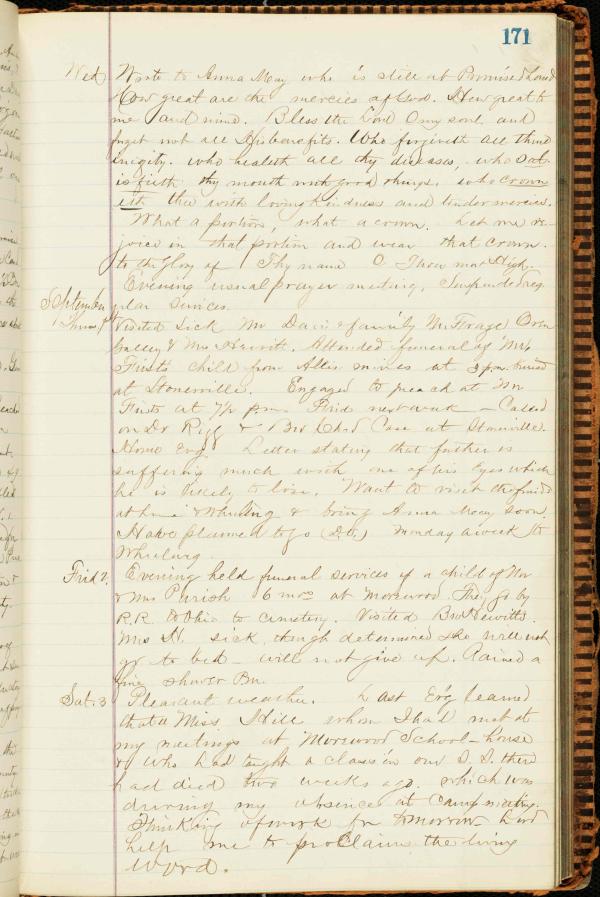 171
Wed Wrote to Anna May who is still at Promised Land
How great are the mercies of God. How great to
me and mind. Bless the Lord O my soul, and
forget not all His benefits. Who forgiveth all thine
iniqity. who healeth all thy diseases, who
thy mouth with good things. who crown
eth thee with loving kindness and tender mercies.
What a portion, what a crown. Let me re-
joice in that portion and wear that crown.
to the Glory of Thy name O Thou most High.
Evening usual prayer meeting. Suspended reg
September ular services.
Thurs 1st Visited Sick Mr Davis & family
& Mrs Hewitt. Attended funeral of Mr
child from mines at 3 p.m. buried
at Stonerville. Engaged to preach at Mr
at 7½ p.m. Frid next week – Called
on Dr Rigg & Bro Chas Case at Stonerville.
Home Evg Letter stating that father is
suffering much with one of his eyes which
he is likely to lose. Want to visit the friends
at home & Wheeling & bring Anna May soon.
Have planned to go (D.V.) Monday a week to
Wheeling.
Frid 2. Evening held funeral services of a child of Mr
& Mrs Parish 6 mos at Morewood. They go by
R.R. to Ohio to cemetery. Visited Bro Hewitts.
Mrs H. sick, though determined she will not
go to bed – will not give up. Rained a
fine shower
Sat. 3 Pleasant weather. Last Ev'g learned
that a Miss Hill whom I had met at
my meetings at Morewood School-house
& who had taught a class in our S.S. there
had died two weeks ago. which was
during my absence at Camp meeting.
Thinkling of work for tomorrow Lord
help me to proclaim the living
Word.